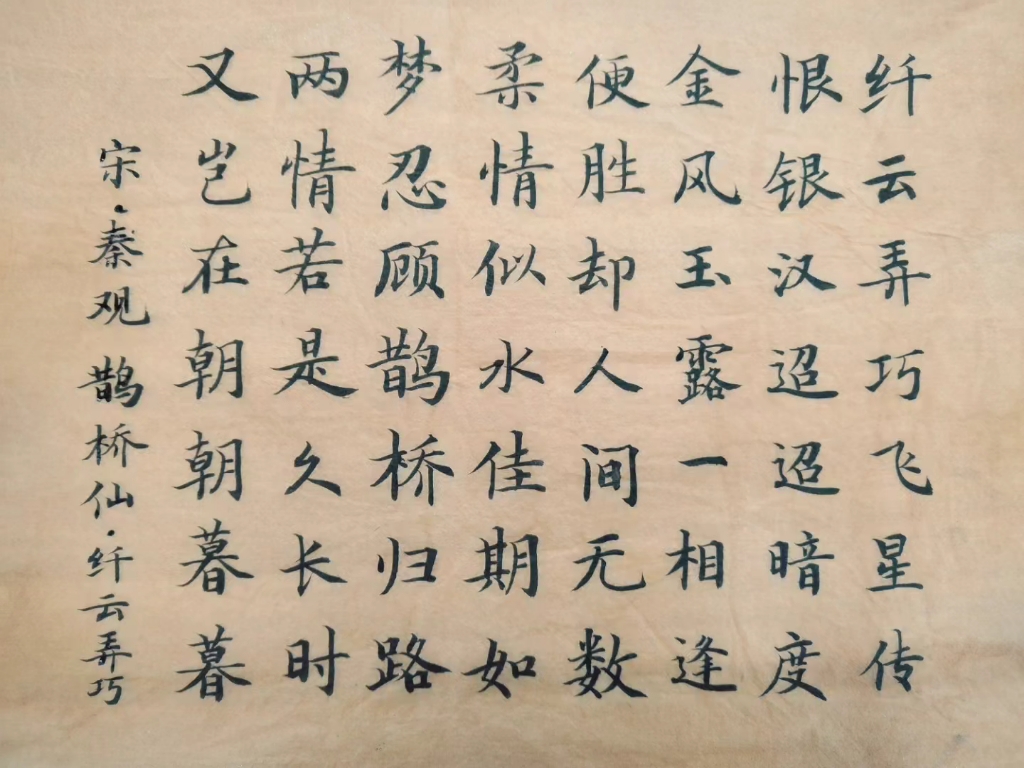 纤云弄巧飞星传
恨银汉迢迢暗度
金风玉露一相逢
便胜却人间无数
柔情似水佳期如
梦忍顾鹊桥归路
两情若是久长时
又岂在朝朝暮暮
宋·秦观 鹊桥仙·纤云弄巧